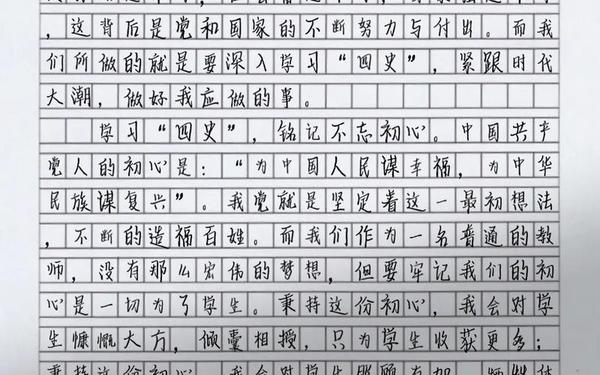 ，这背后是党和国家的不断努力与付出。而我
们所做的就是要深入学习“四史”，紧跟时代
大潮，做好我应做的事。
学习“四史”，铭记不忘初心。中国共产
党人的初心是：“为中国人民谋幸福，为中华
民族谋复兴”。我党就是坚定着这一最初想法
，不断的造福百姓。而我们作为一名普通的教
师，没有那么宏伟的梦想，但要牢记我们的初
心是一切为了学生。秉持这份初心，我会对学
生慷慨大方，倾囊相授，只为学生收获更多；
秉持这份初心，我会对学生